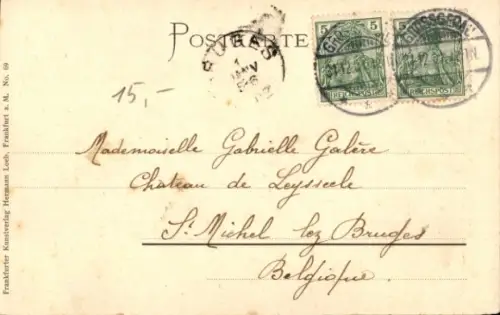 POSTKARTE
5 5
REICHSPOST REICHSPOST
1
15,-
Mademoiselle Gabrielle Galère
Château de Leysseele
St Michel lez Bruges
Belgique.
Frankfurter Kunstverlag Hermann Loeb, Frankfurt a. M. No. 69